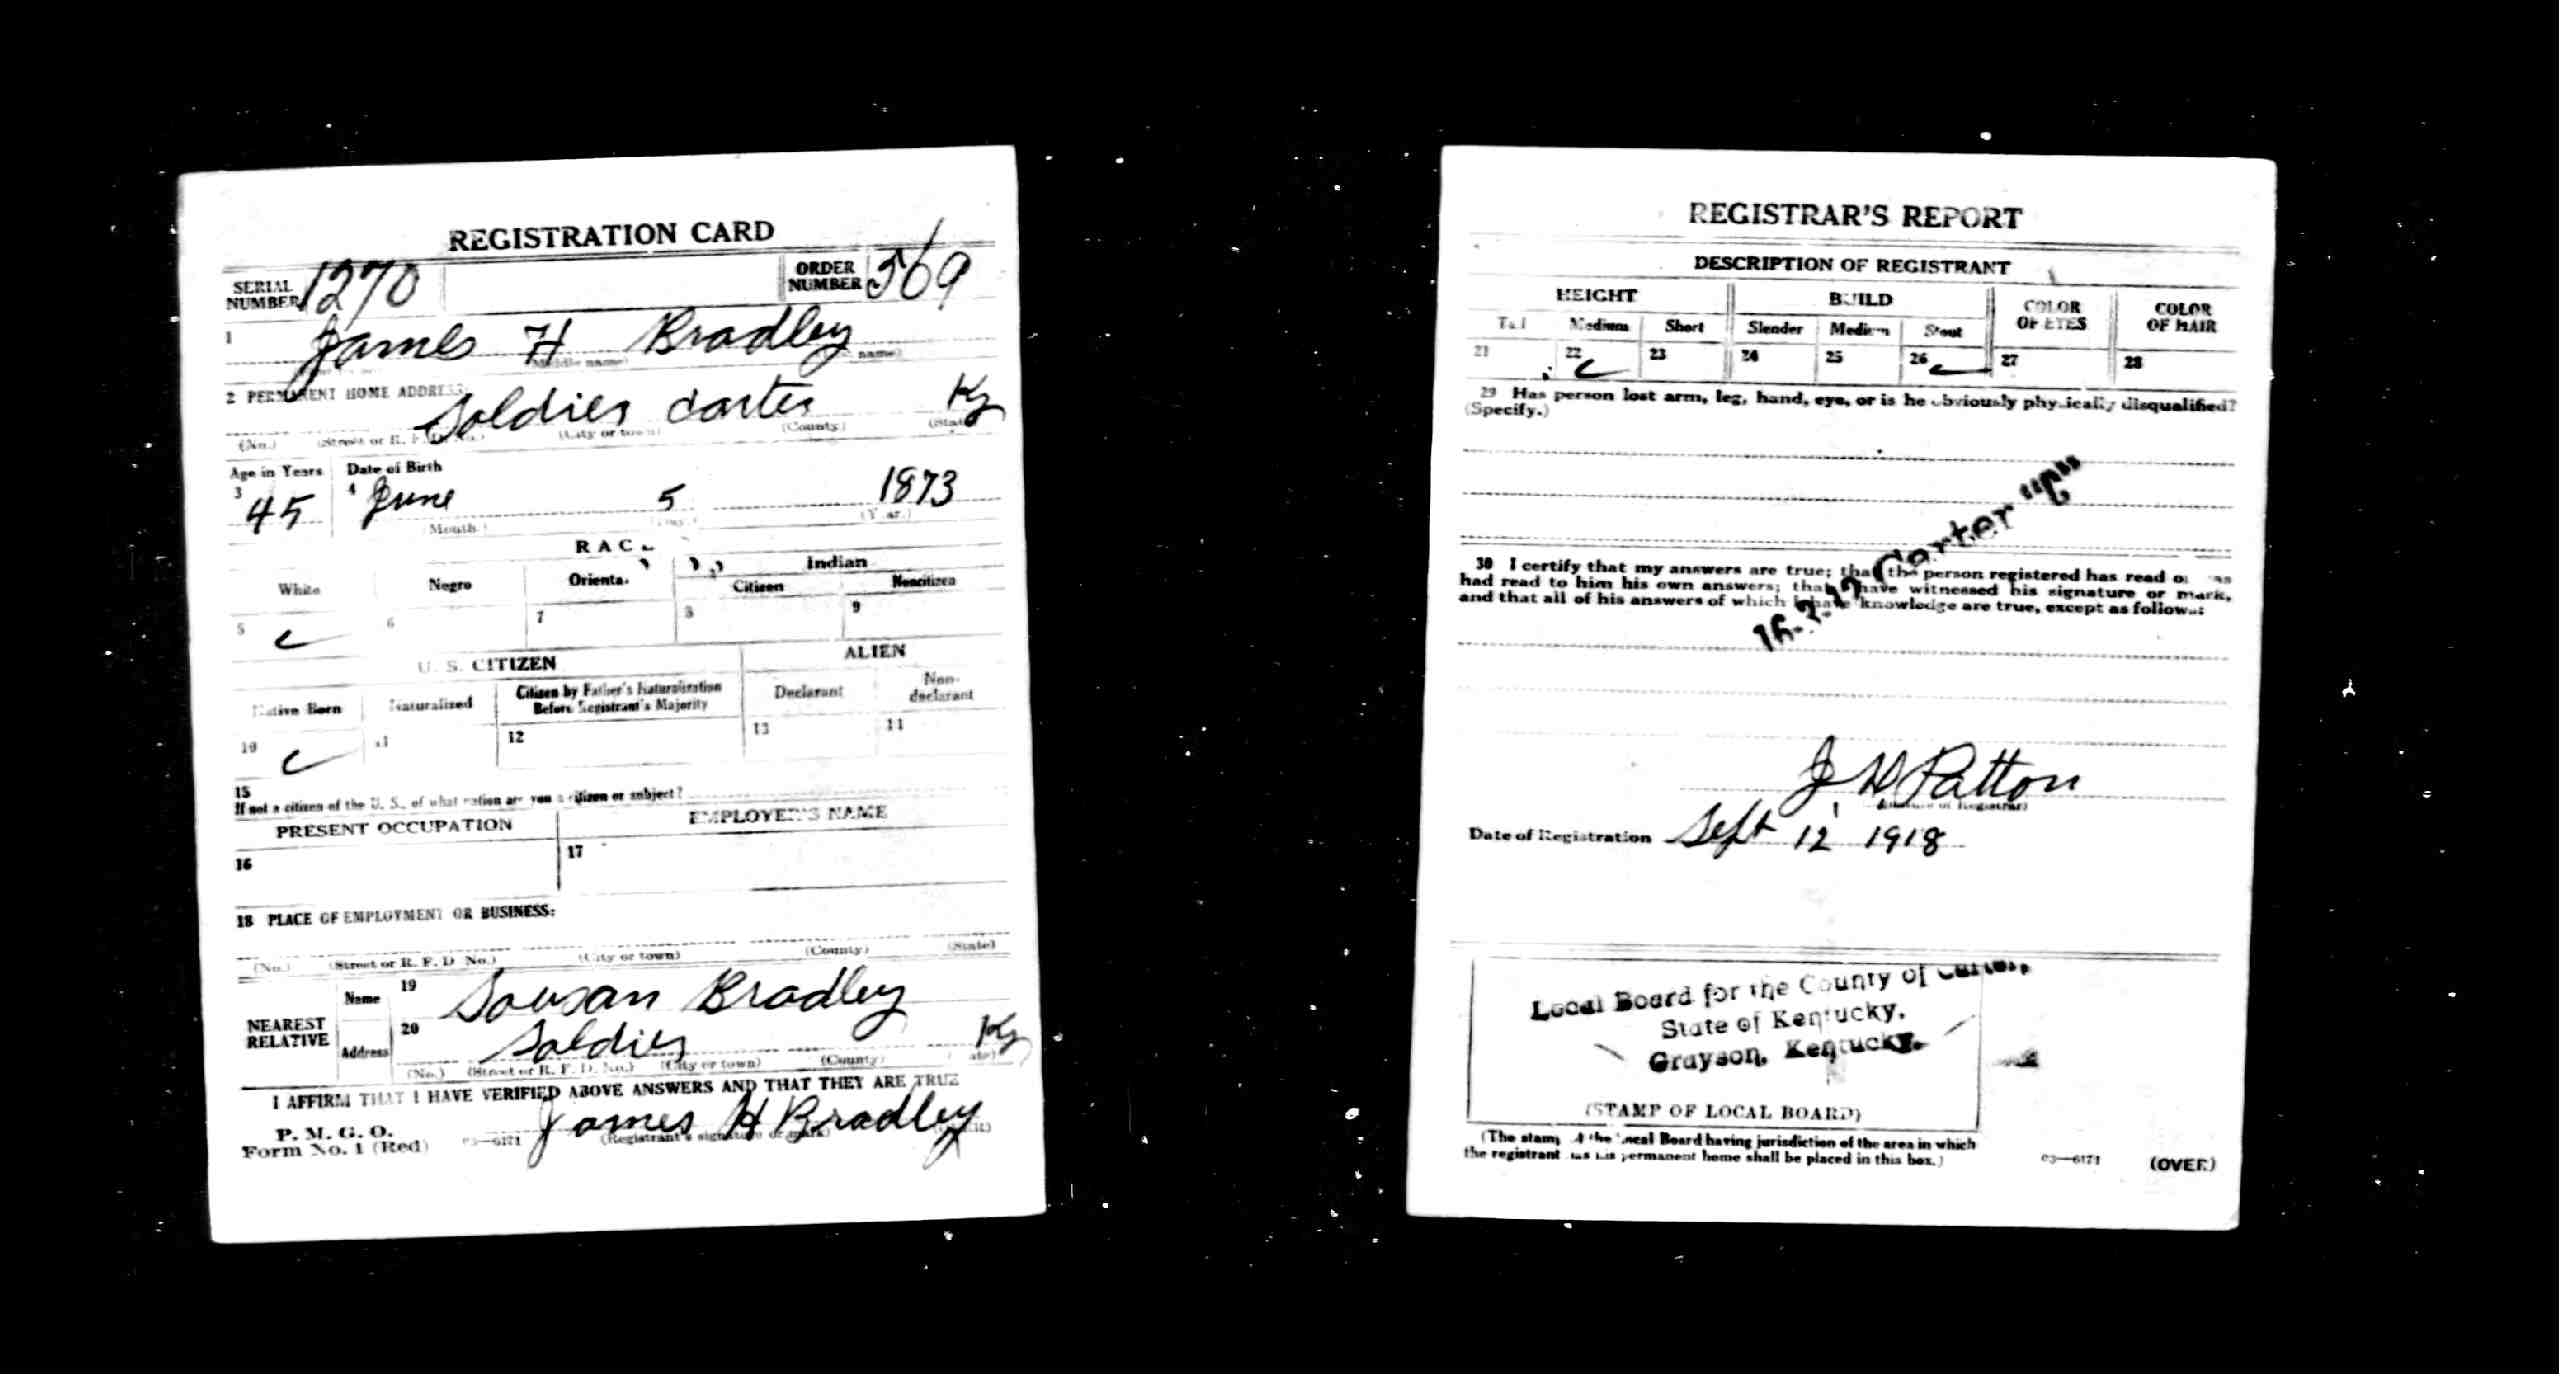 REGISTRATION CARD
SERIAL NUMBER 1270 ORDER NUMBER 569
1 James H Bradley
(Middle name) name)
2 PERMANENT HOME ADDRESS:
Soldier Carter Ky
(No.) (Street or R. F. D. No.) (City or town) (County) (State)
Age in Years Date of Birth
3 45 4 June 5 1873
(Month.) (Day.) (Year.)
RACE
White Negro Oriental Indian
Citizen Noncitizen
5 6 7 8 9
U. S. CITIZEN ALIEN
Native Born Naturalized Citizen by Father's Naturalization Before Registrant's Majority Declarant Non-declarant
10 11 12 13 14
15
If not a citizen of the U. S., of what nation are you a citizen or subject?
PRESENT OCCUPATION EMPLOYER'S NAME
16 17
18 PLACE OF EMPLOYMENT OR BUSINESS:
(No.) (Street or R. F. D. No.) (City or town) (County) (State)
NEAREST RELATIVE Name 19 Sousan Bradley
Address 20 Soldier Ky
(No.) (Street or R. F. D. No.) (City or town) (County) (State)
I AFFIRM THAT I HAVE VERIFIED ABOVE ANSWERS AND THAT THEY ARE TRUE
P. M. G. O.
Form No. 1 (Red) 03—6171 James H Bradley
(Registrant's signature or mark)
REGISTRAR'S REPORT
DESCRIPTION OF REGISTRANT
HEIGHT BUILD COLOR OF EYES COLOR OF HAIR
Tall Medium Short Slender Medium Stout
21 22 23 24 25 26 27 28
29 Has person lost arm, leg, hand, eye, or is he obviously physically disqualified?
(Specify.)
Carter "C"
30 I certify that my answers are true; that the person registered has read or has
had read to him his own answers; that I have witnessed his signature or mark,
and that all of his answers of which I have knowledge are true, except as follows:
J H Patton
(Signature of Registrar)
Date of Registration Sept 12 1918
Local Board for the County of Carter,
State of Kentucky,
Grayson, Kentucky.
(STAMP OF LOCAL BOARD)
(The stamp of the Local Board having jurisdiction of the area in which
the registrant has his permanent home shall be placed in this box.)
03—6171 (OVER)